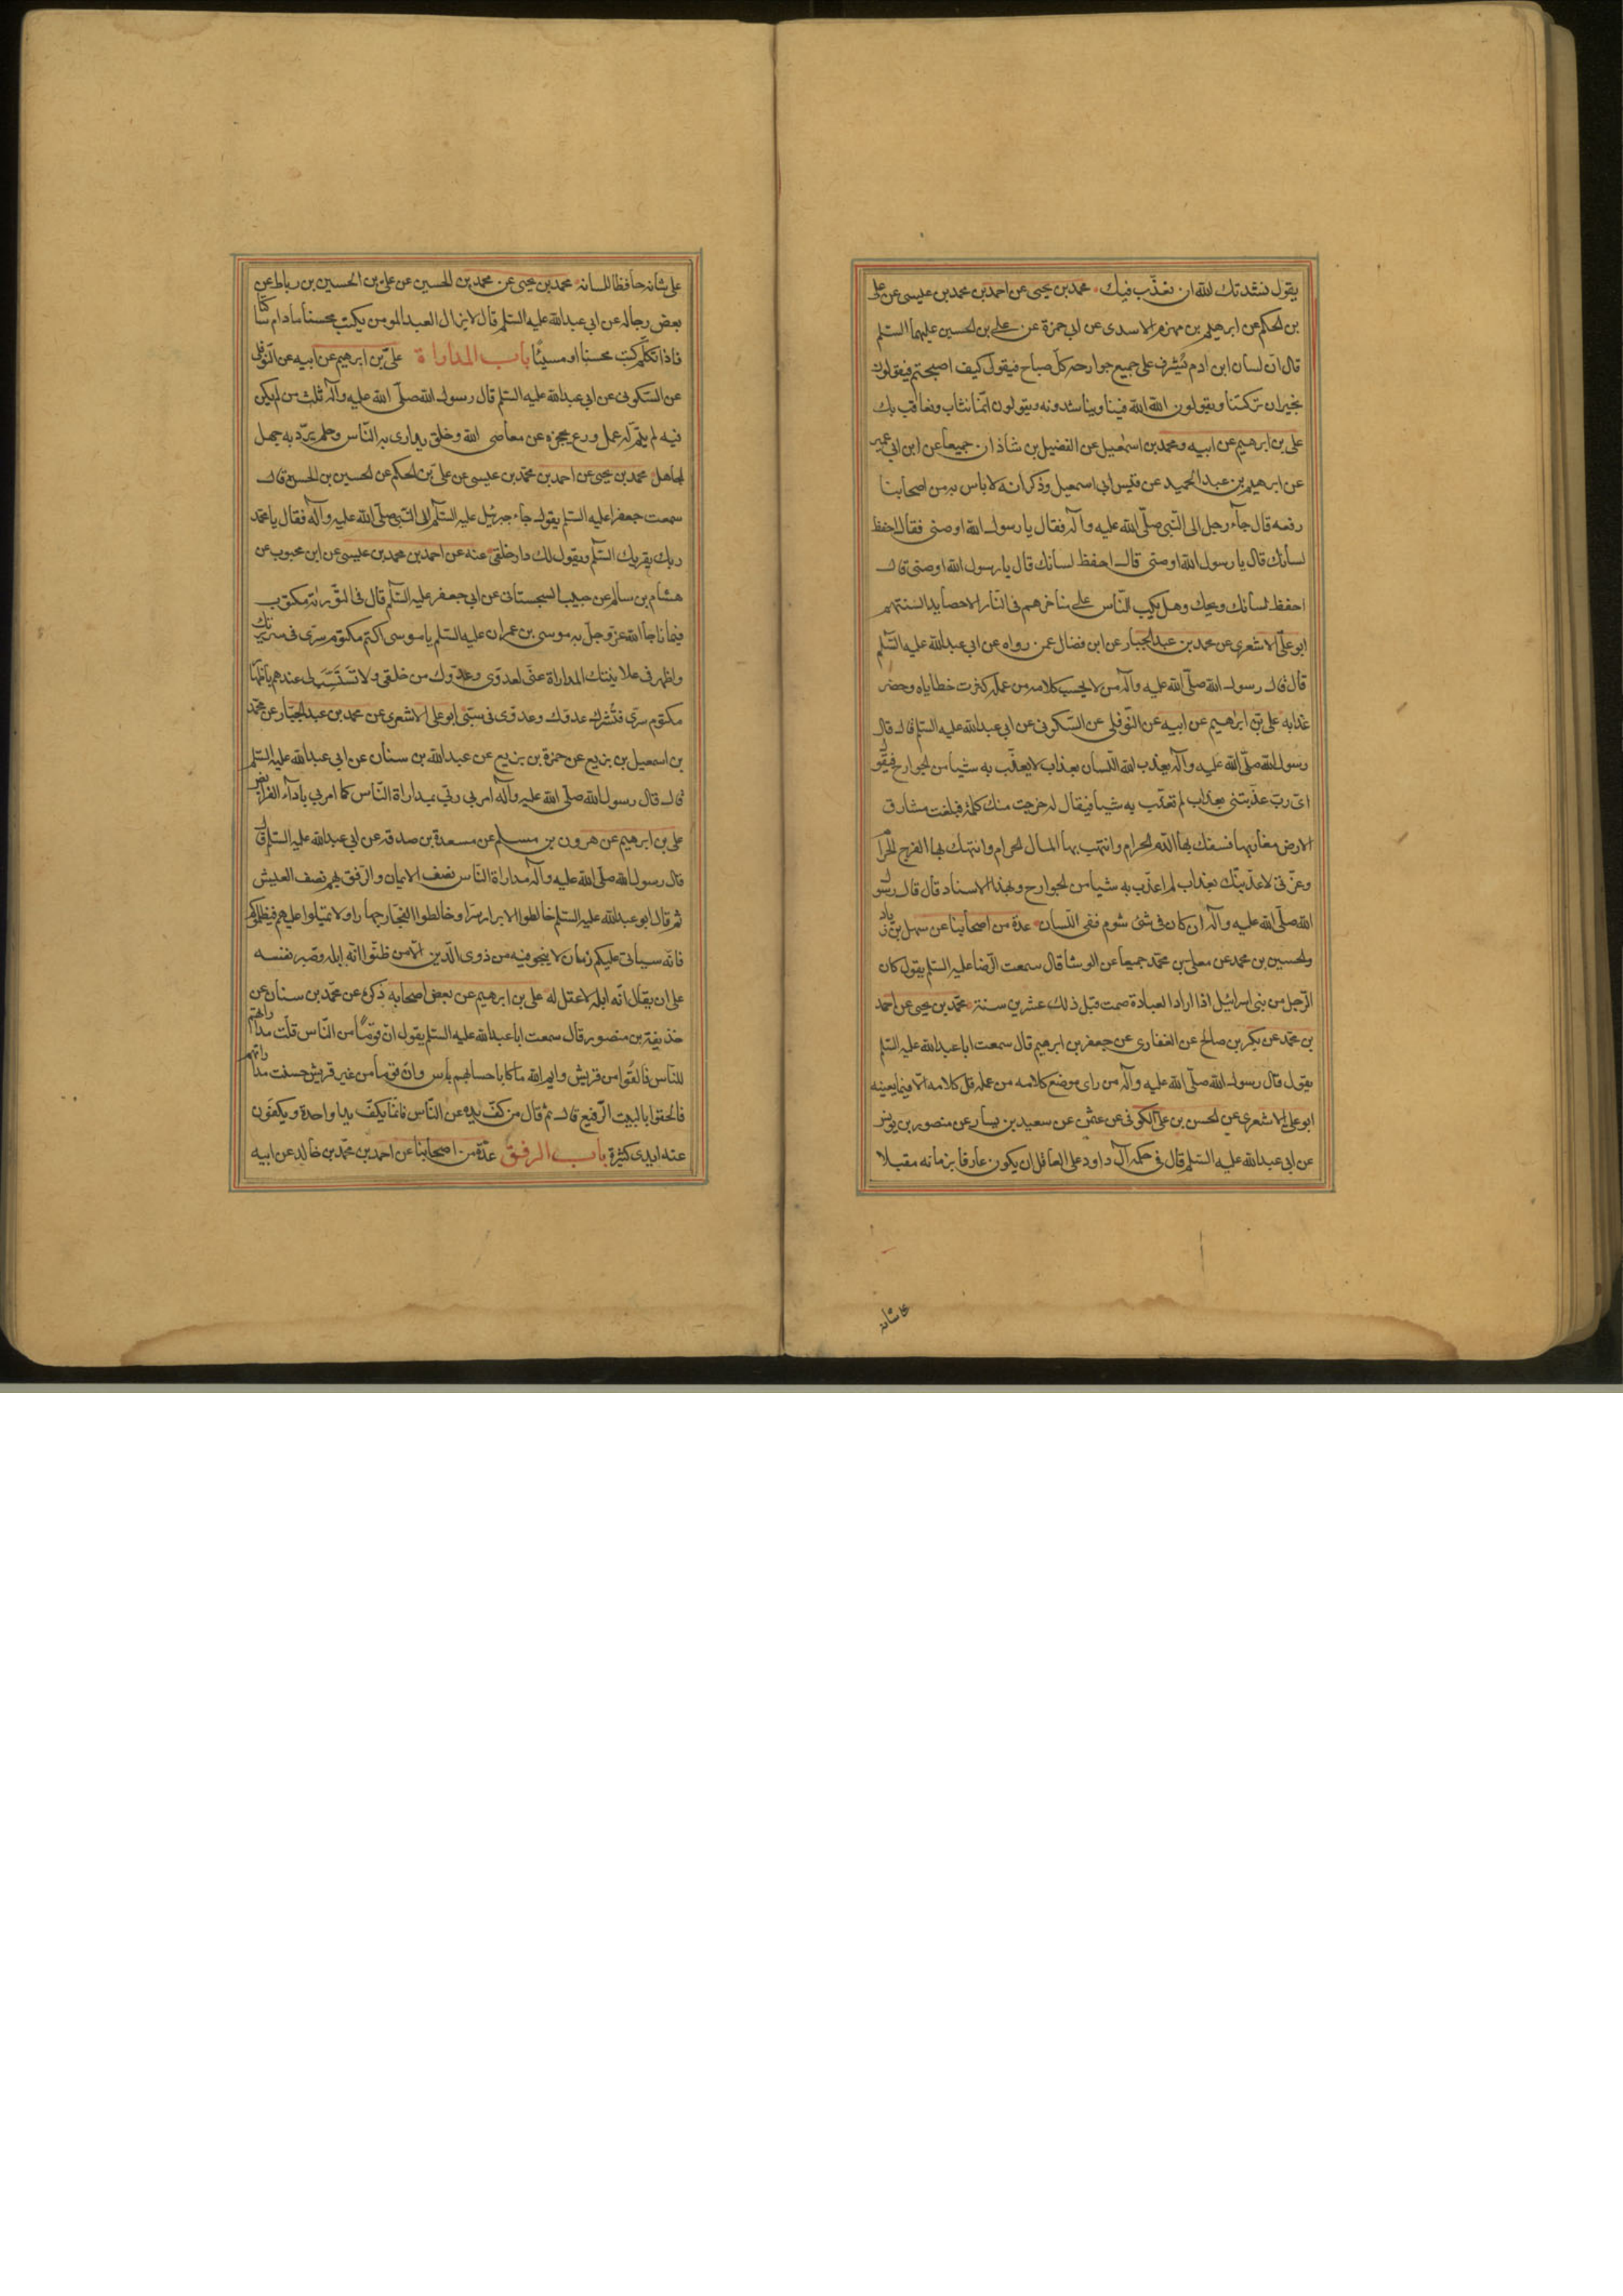 يقول نشدتك الله ان نعذّب فيك محمد بن يحيى عن احمد بن محمد بن عيسى عن علي
بن الحكم عن ابرهيم بن مهزم الاسدى عن ابي حمزة عن علي بن الحسين عليهما السلم
قال ان لسان ابن ادم يُشرف على جميع جوارحه كل صباح فيقول كيف اصبحتم فيقولون
بخير ان تركتنا ويقولون الله الله فينا ويناشدونه ويقولون انّما نثاب ونعاقب بك
علي بن ابرهيم عن ابيه ومحمد بن اسمعيل عن الفضيل بن شاذان جميعا عن ابن ابي عمير
عن ابرهيم بن عبد الحميد عن قيس ابي اسمعيل وذكر انه لا باس به من اصحابنا
رفعه قال جآء رجل الى النّبي صلّى الله عليه وآله فقال يا رسول الله اوصنى فقال احفظ
لسانك قال يا رسول الله اوصنى قال احفظ لسانك قال يا رسول الله اوصنى قال
احفظ لسانك ويحك وهل يكب النّاس على مناخرهم فى النّار الا حصايد السنتهم
ابو علىّ الاشعرى عن محمد بن عبد الجبار عن ابن فضال عمن رواه عن ابي عبد الله عليه السّلم
قال قال رسول الله صلّى الله عليه وآله من لا يحسب كلامه من عمله كثرت خطاياه وحضر
عذابه على بن ابرهيم عن ابيه عن النّوفلى عن السّكونى عن ابي عبد الله عليه السّلم قال قال
رسول الله صلّى الله عليه وآله يعذب الله اللّسان بعذاب لا يعذّب به شيا من الجوارح فيقول
اى ربّ عذّبتنى بعذاب لم تعذّب به شيا فيقال له خرجت منك كلمة فبلغت مشارق
الارض مغاربها فسفك بها الدّم الحرام وانتهب بها المال الحرام وانتهك بها الفرج الحرام
وعزّتى لاعذّبنّك بعذاب لم اعذّب به شيا من الجوارح وبهذا الاسناد قال قال رسول
الله صلّى الله عليه وآله ان كان فى شئ شوم ففى اللّسان عدة من اصحابنا عن سهل بن زياد
والحسين بن محمد عن معلى بن محمّد جميعا عن الوشا قال سمعت الرّضا عليه السّلم يقول كان
الرّجل من بنى اسرائيل اذا اراد العبادة صمت قبل ذلك عشرين سنة محمّد بن يحيى عن احمد
بن محمّد عن بكر بن صالح عن الغفارى عن جعفر بن ابرهيم قال سمعت ابا عبد الله عليه السّلم
يقول قال رسول الله صلّى الله عليه وآله من راى موضع كلامه من عمله قل كلامه الّا فيما يعينه
ابو على الاشعرى عن الحسن بن علىّ الكوفى عن عثمن عن سعيد بن يسار عن منصور بن يونس
عن ابي عبد الله عليه السّلم قال فى حكمة آل داود على العاقل ان يكون عارفا بزمانه مقبلا
على شانه
على شانه حافظا للسانه محمد بن يحيى عن محمد بن الحسين عن على بن الحسين بن رباط عن
بعض رجاله عن ابي عبد الله عليه السّلم قال لا يزال العبد المومن يكتب محسنا ما دام ساكتا
فاذا تكلّم كتب محسنا او مسيئًا باب المداراة علىّ بن ابرهيم عن ابيه عن النّوفلى
عن السّكونى عن ابي عبد الله عليه السّلم قال رسول الله صلّى الله عليه وآله ثلث من لم يكن
فيه لم يتمّ له عمل ورع يحجزه عن معاصى الله وخلق يدارى به النّاس وحلم يردّ به جهل
الجاهل محمد بن يحيى عن احمد بن محمّد بن عيسى عن على بن الحكم عن الحسين بن الحسن قال
سمعت جعفرا عليه السّلم يقول جاء جبرئيل عليه السّلم الى النّبى صلّى الله عليه وآله فقال يا محمّد
ربك يقريك السّلم ويقول لك دار خلقى عنه عن احمد بن محمد بن عيسى عن ابن محبوب عن
هشام بن سالم عن حبيب السجستانى عن ابي جعفر عليه السّلم قال فى التّورىة مكتوب
فيما ناجا الله عزّ وجلّ به موسى بن عمران عليه السّلم يا موسى اكتم مكتوم سرّى فى سريرتك
واظهر فى علانيتك المداراة عنّى لعدوّى وعدوّك من خلقى ولا تستسبّ لى عندهم باظهار
مكتوم سرّى فتُشرك عدوّك وعدوّى فى سبّى ابو على الاشعرى عن محمد بن عبد الجبّار عن محمّد
بن اسمعيل بن بزيع عن حمزة بن بزيع عن عبد الله بن سنان عن ابي عبد الله عليه السّلم
قال قال رسول الله صلّى الله عليه وآله امرنى ربّى بمداراة النّاس كما امرنى بادآء الفرايض
على بن ابرهيم عن هرون بن مسلم عن مسعدة بن صدقه عن ابي عبد الله عليه السّلم قال
قال رسول الله صلّى الله عليه وآله مداراة النّاس نصف الايمان والرّفق بهم نصف العيش
ثم قال ابو عبد الله عليه السّلم خالطوا الابرار سرّا وخالطوا الفجّار جهارا ولا تميلوا عليهم فيظلموكم
فانّه سياتى عليكم زمان لا ينجو فيه من ذوى الدّين الّا من ظنّوا انّه ابله وصبر نفسه
على ان يقال انّه ابله لا عقل له على بن ابرهيم عن بعض اصحابه ذكره عن محمّد بن سنان عن
حذيفة بن منصور قال سمعت ابا عبد الله عليه السّلم يقول انّ قومًا من النّاس قلّت مداراتهم
للنّاس فالقوا من قريش وايم الله ما كا باحسابهم باس وانّ قوما من غير قريش حسنت مداراتهم
فالحقوا بالبيت الرّفيع قال ثم قال من كفّ يده عن النّاس فانّما يكفّ يدا واحدة ويكفّون
عنه ايدى كثيرة باب الرفق عدّة من اصحابنا عن احمد بن محمّد بن خالد عن ابيه